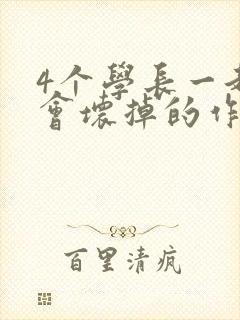 4个學長一
會壞掉的作
百里清疯